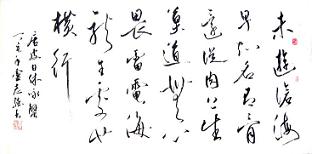 未遊滄海
早知名有骨
還從肉上生
莫道無心
畏雷電海
龍王處也
橫行
唐皮日休詠蟹